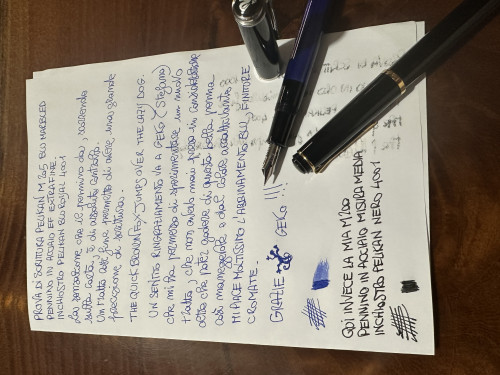 PROVA DI SCRITTURA PELIKAN M205 BLU MARBLED
PENNINO IN ACCIAIO EF EXTRAFINE
INCHIOSTRO PELIKAN BLU ROYAL 4001
La sensazione che il pennino dà, scorrendo
sulla carta, è di assoluto controllo.
Un tratto così fine permette di avere una grande
precisione di scrittura.
THE QUICK BROWN FOX JUMPS OVER THE LAZY DOG.
UN SENTITO RINGRAZIAMENTO VA A GEKO (Stefano)
che mi ha permesso di sperimentare un nuovo
tratto, che non avevo mai preso in considerazione
oltre che poter godere di questa bella penna
così maneggevole e dal colore accattivante.
MI PIACE MOLTISSIMO L'ABBINAMENTO BLU, FINITURE
CROMATE.
GRAZIE GEKO !!!
QUI INVECE LA MIA M200
PENNINO IN ACCIAIO MISURA MEDIA
INCHIOSTRO PELIKAN NERO 4001